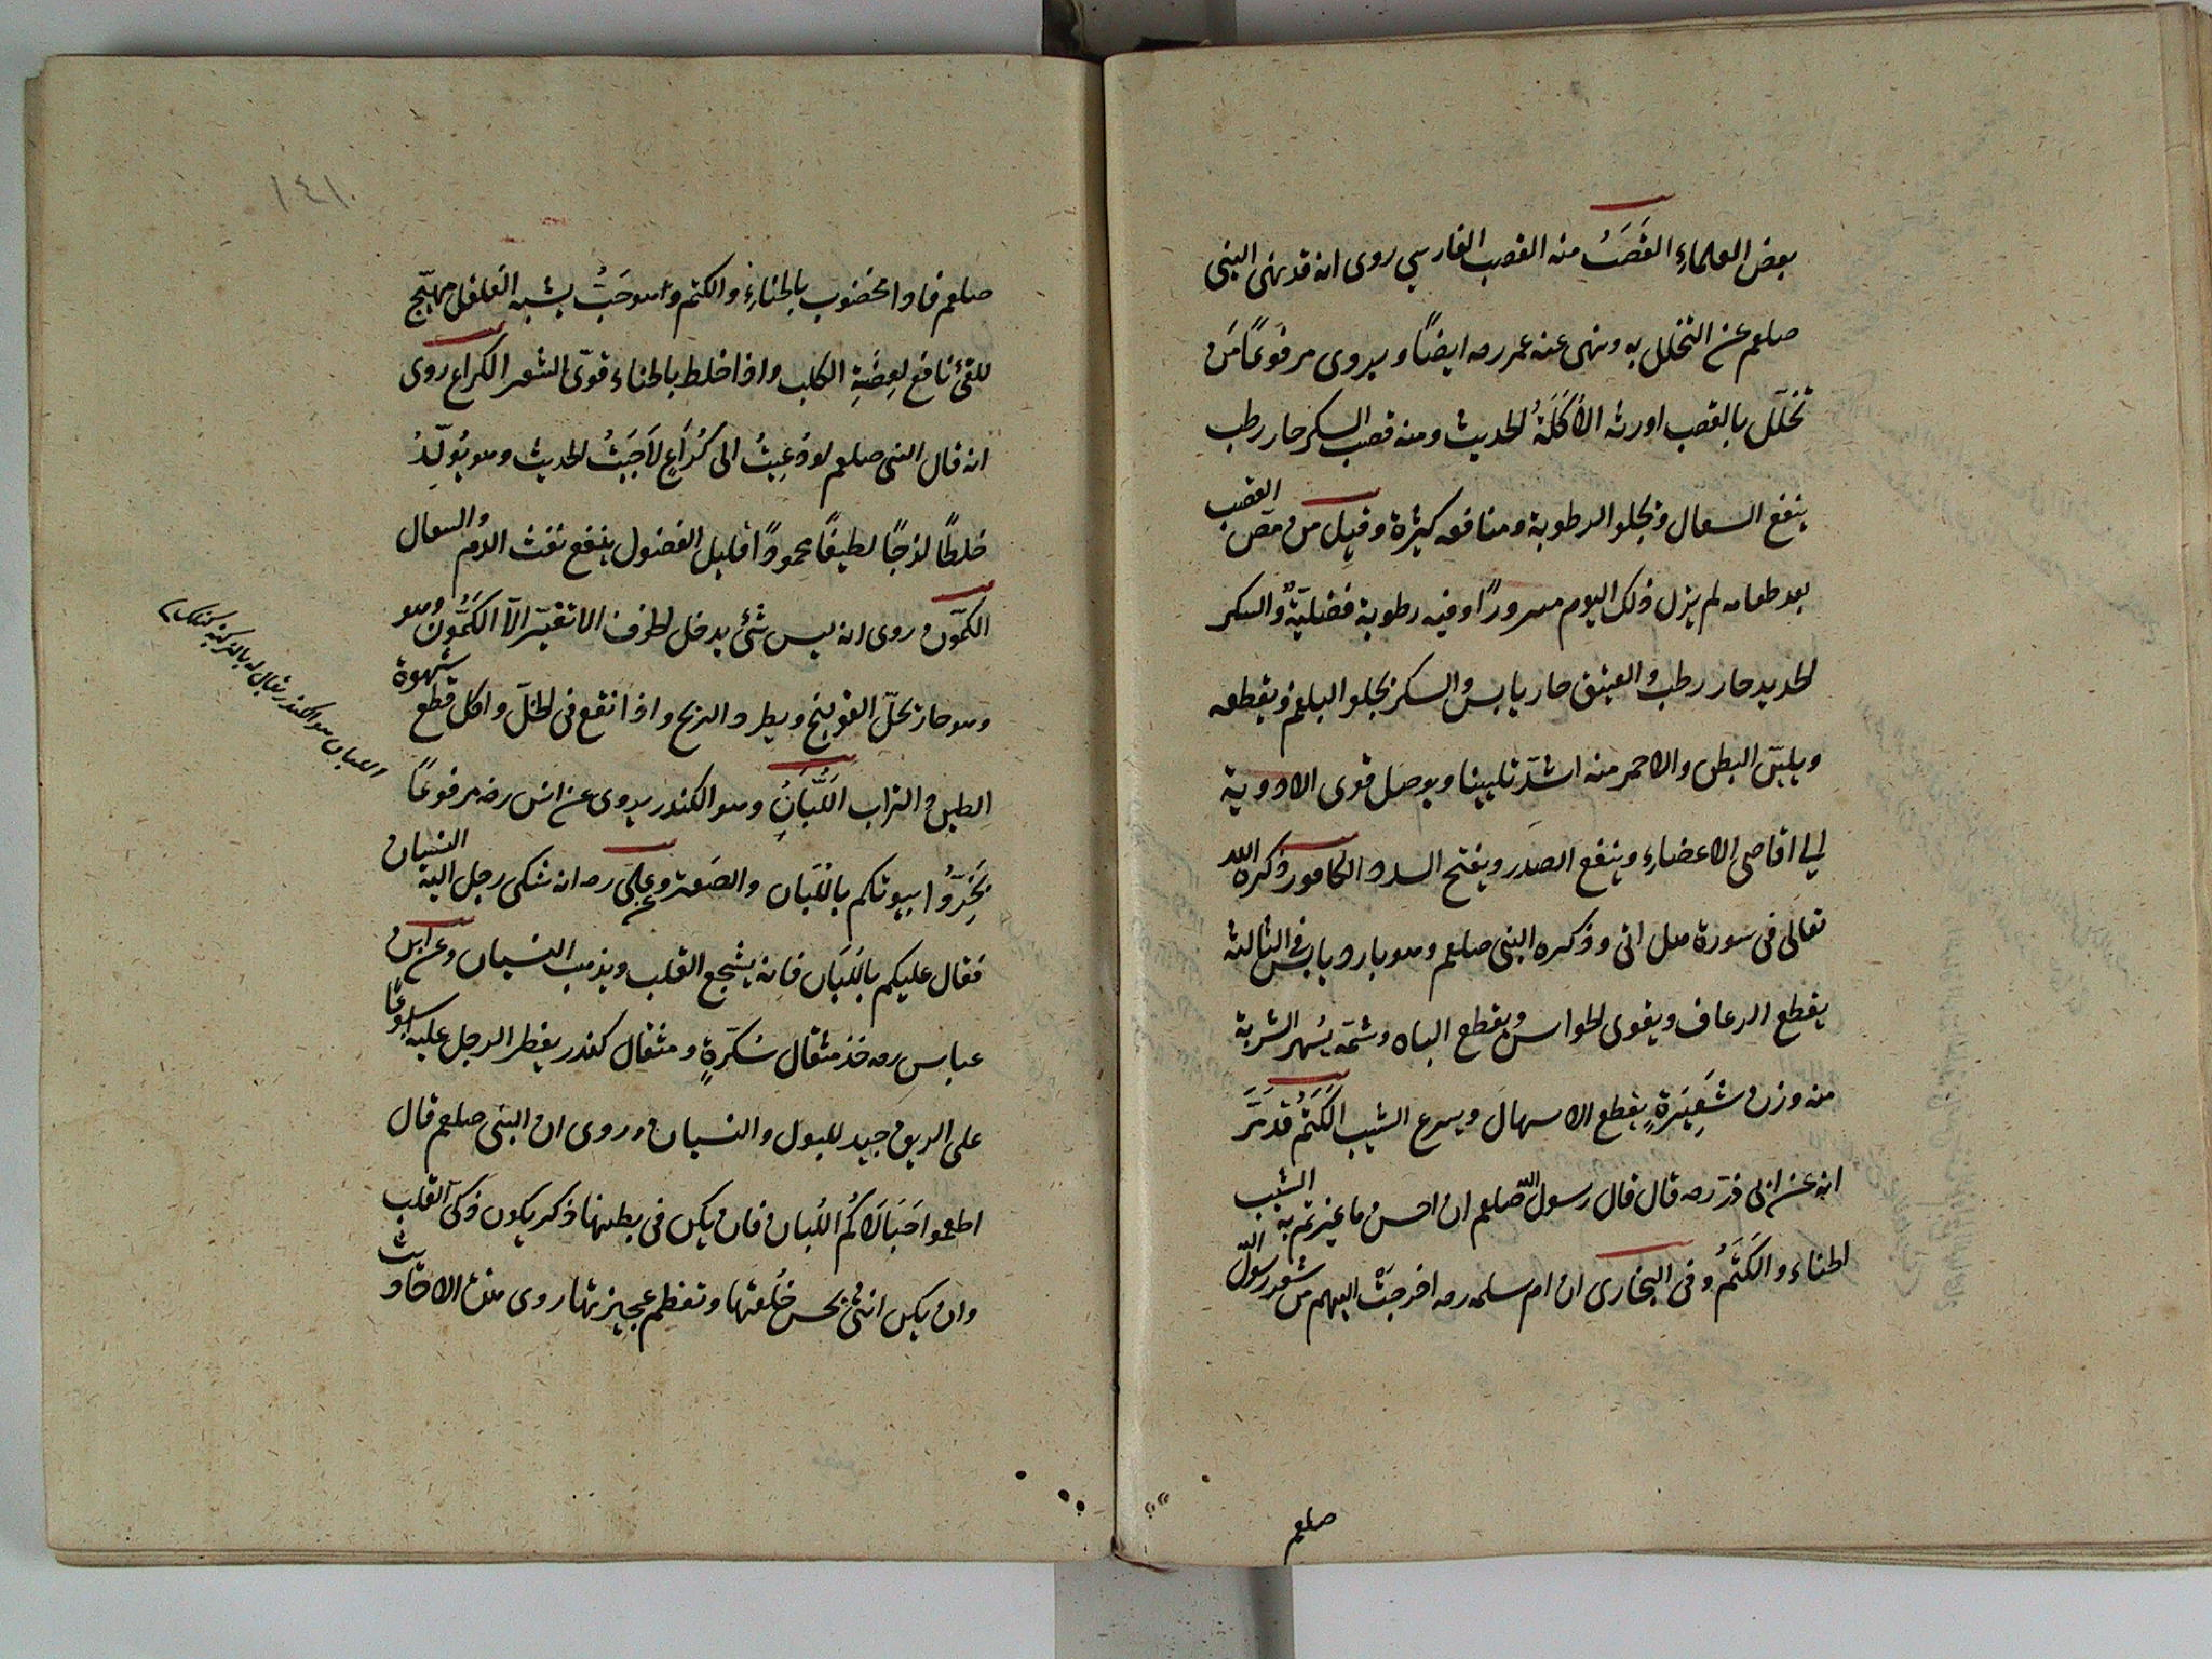 بعض العلماءِ القَصَبُ منه القصب الفارسي روى انه قد نهى النبى
صلعم عن التخلل به ونهى عنه عمر رصه ايضًا ويروى مرفوعًا مَن
تخلّل بالقصب اورثه الأَكَلَةُ الحديث ومنه قصب السكر حار رطب
ينفع السعال ويجلو الرطوبة ومنافعه كثيرة وقيل من مصّ القصب
بعد طعامه لم يزل ذلك اليوم مسرورًا وفيه رطوبة فضليّةٌ والسكر
الحديد حار رطب والعتيق حار يابس والسكر يجلو البلغم ويقطعه
ويليّن البطن والاحمر منه اشدّ تليينا ويوصل قوى الادوية
الى اقاصى الاعضاءِ وينفع الصدر ويفتح السدد الكافور ذكره الله
تعالى فى سورة هل اتى وذكره النبى صلعم وهو بارد يابس فى الثالثة
يقطع الرعاف ويقوى الحواس ويقطع الباه وشمّه يُسهر الشربة
منه وزن شَعِيَرةٍ يقطع الاسهال ويسرع الشيب الكَتَمُ قد مَرَّ
انه عن ابى ذرّ رصه قال قال رسول الله صلعم ان احسن ما غيرتم به الشيب
الحناء والكَتَمُ وفى البخارى ان ام سلمه رصه اخرجَتْ اليهم من شعر رسول الله
صلعم
١٤١٠
صلعم فاذا مخضوب بالحناءِ والكتم وهو حَبٌّ يشبه الفلفل مهيّج
للقئ نافع لعِضَّةِ الكلب واذا خلط بالحناء قوّى الشعر الكراع روى
انه قال النبى صلعم لو دُعِيتُ الى كُرَاعٍ لاَجَبْتُ الحديث وهو يُولِّدُ
خلطًا لزجًا لطيفًا محمودًا قليل الفضول ينفع نفث الدم والسعال
الكمّون روى انه ليس شئ يدخل الجوف الا تغيّر الّا الكَمُّونَ وهو
وهو حار يحلّ القولنج ويطرد الريح واذا انقع فى الخلّ واكل قطع شهوة
الطين والتراب اللُّبَانُ وهو الكندر يروى عن انس رضه مرفوعًا
بَخِّرُوا بيوتكم باللُّبَان والصَعتر وعن علىّ رصه انه شكى رجل اليه النسيان
فقال عليكم باللُبَان فانه يشجع القلب ويذهب النسيان وعن ابن
عباس رصه خذ مثقال سُكّرةٍ ومثقال كندر يفطر الرجل عليه اسبوعًا
على الريق جيد للبول والنسيان وروى ان النبى صلعم قال
اطعموا حَبَالَاكُم اللُبان فان يكن فى بطنها ذكر يكون ذكىّ القلب
وان يكن انثى يحسن خُلقتها وتعظم عجيزتها روى هذه الاحاديث
اللبان هو الكندر يقال له بالتركية كنلك